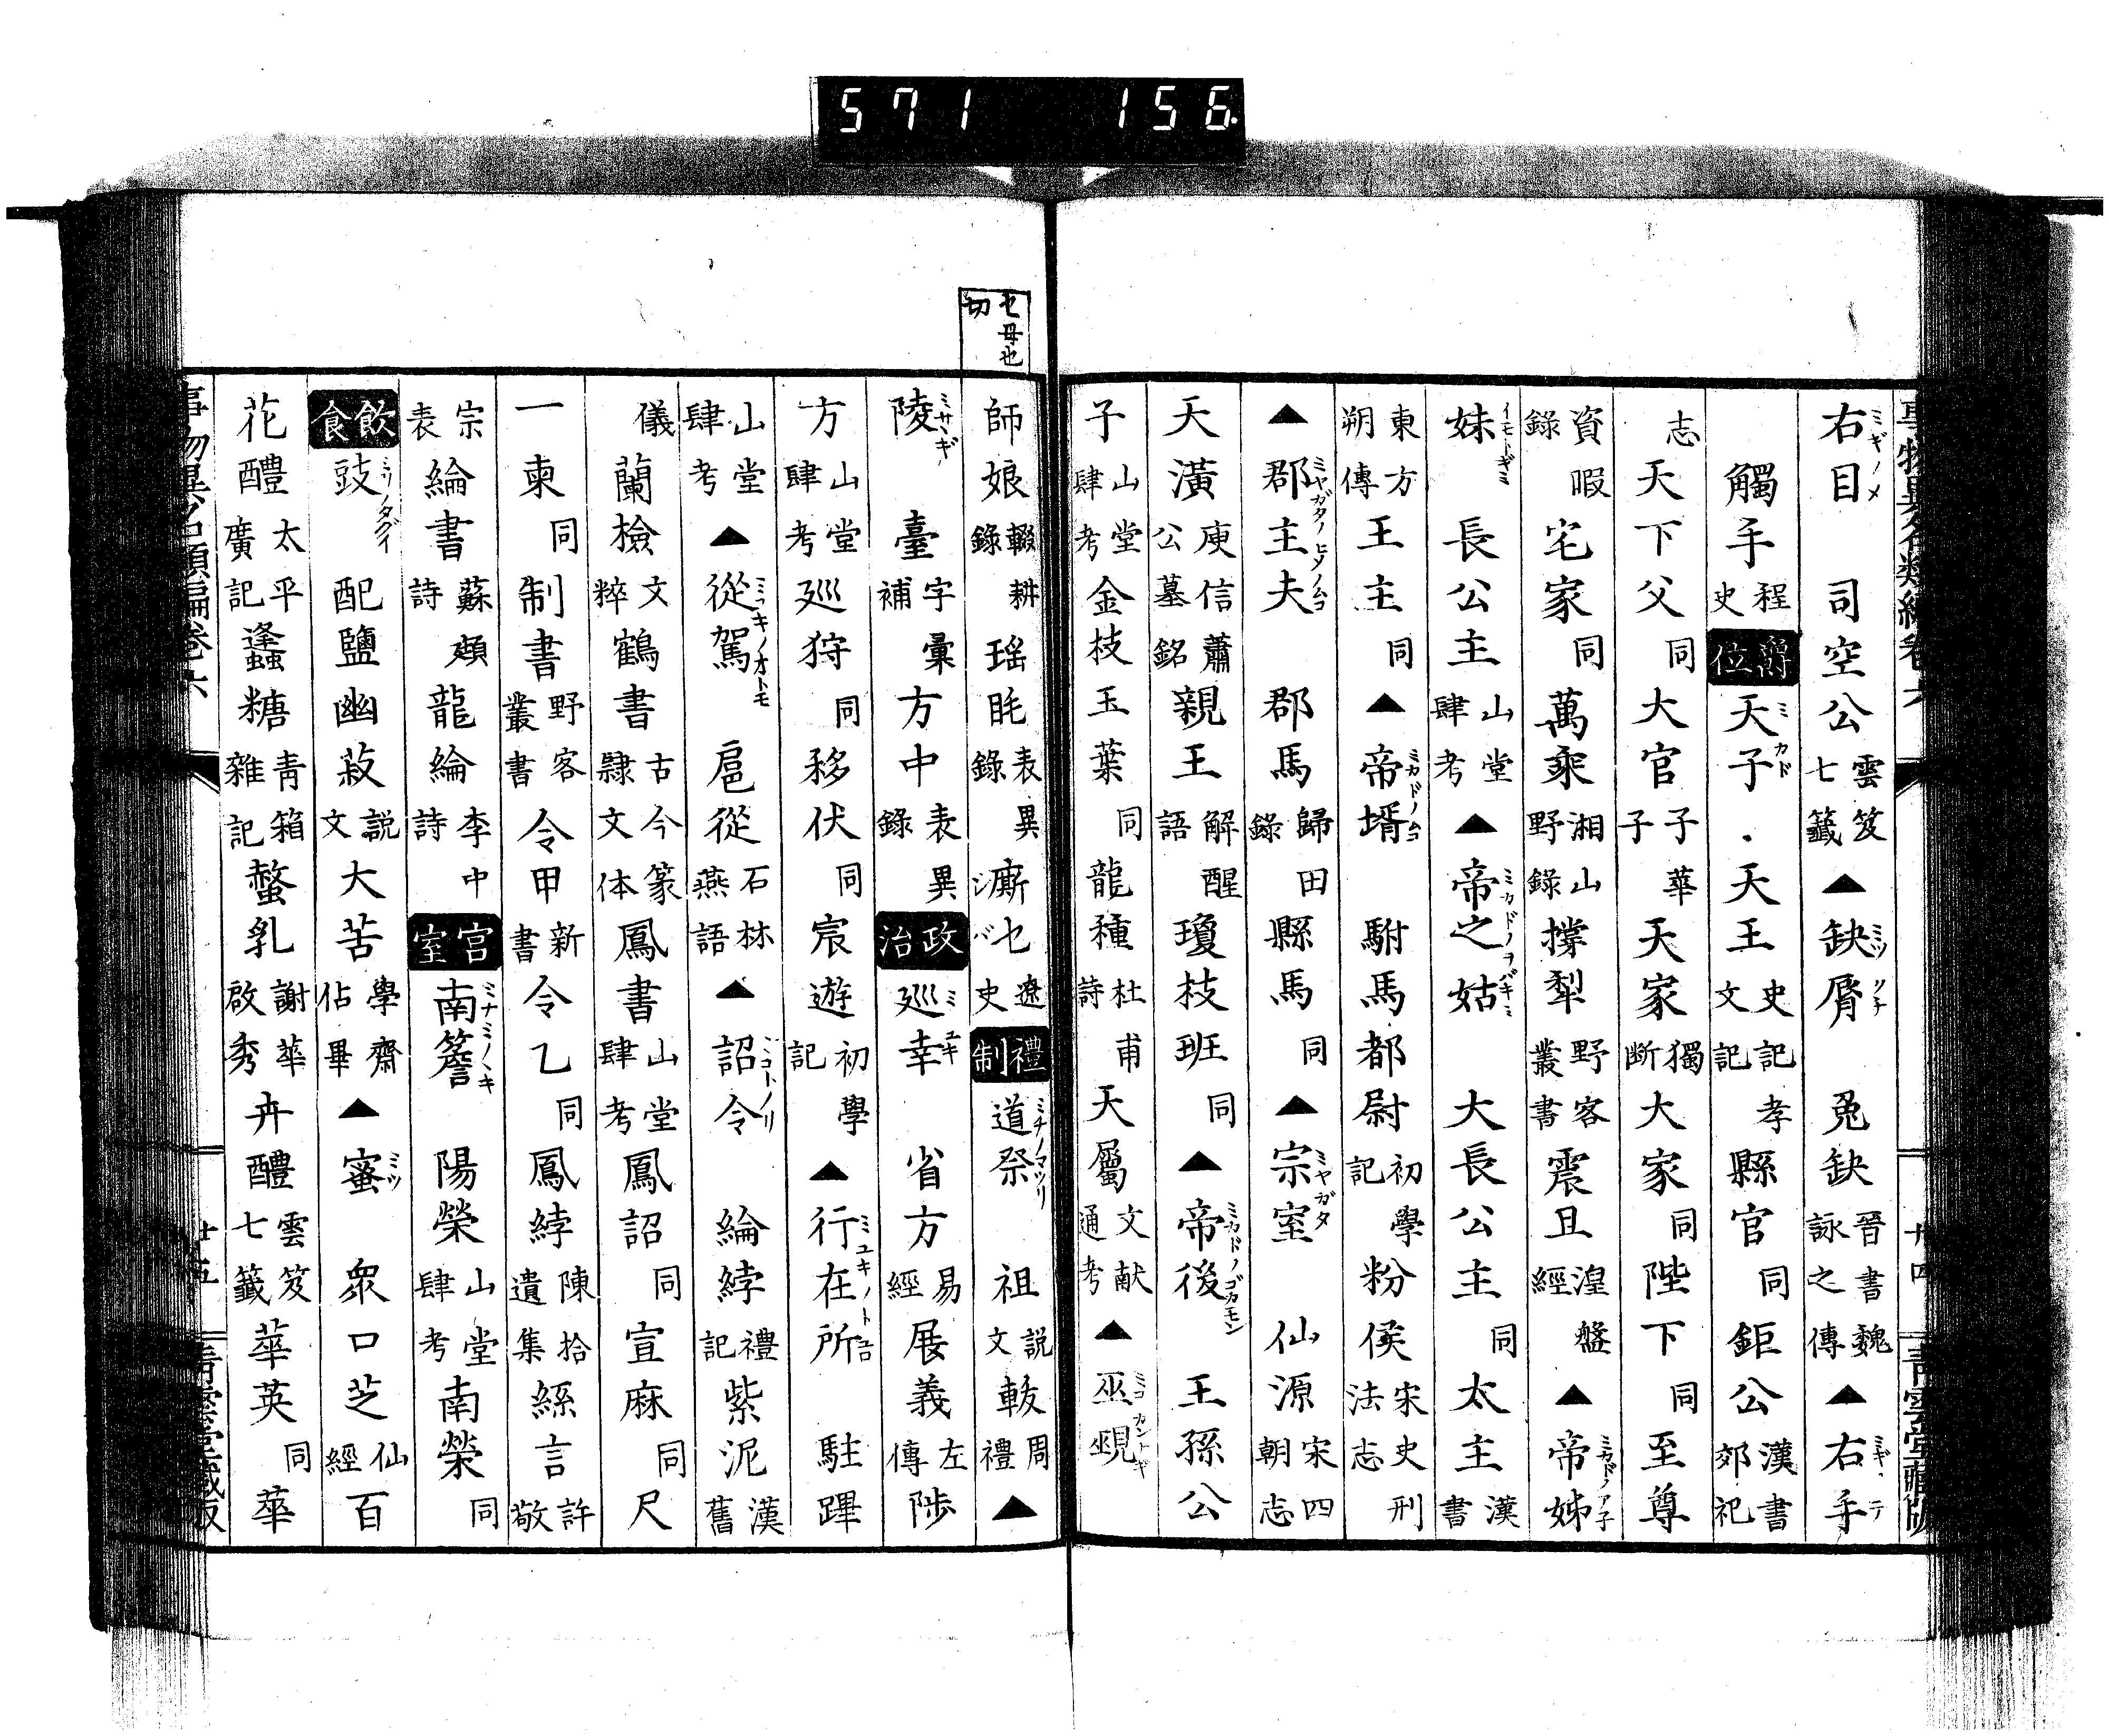 571 156
右目 司空公 雲笈七籤 ▲缺脣 兎缺 晉書魏詠之傳 ▲右手
觸手 程史 爵位 天子 天王 史記孝文記 縣官 同 鉅公 漢書郊祀
志 天下父 同 大官 子華子 天家 獨断 大家 同 陛下 同 至尊
資暇錄 宅家 同 萬乘 湘山野錄 撐犁 野客叢書 震旦 湟盤經 ▲帝姊
妹 長公主 山堂肆考 ▲帝之姑 大長公主 同 太主 漢書
東方朔傳 王主 同 ▲帝壻 駙馬都尉 初學記 粉侯 宋史刑法志
▲郡主夫 郡馬 歸田錄 縣馬 同 ▲宗室 仙源 宋四朝志
天潢 庾信蕭公墓銘 親王 解醒語 瓊技班 同 ▲帝後 王孫公
子 山堂肆考 金枝玉葉 同 龍種 杜甫詩 天屬 文献通考 ▲巫覡
師娘 輟耕錄 瑶眊 表異錄 廝乜 遼史 禮制 道祭 祖 説文 軷 周禮 ▲
乜毋也切
陵 臺 字彙補 方中 表異錄 政治 廵幸 省方 易經 展義 左傳 陟
方 山堂肆考 廵狩 同 移伏 同 宸遊 初學記 ▲行在所 駐蹕
山堂肆考 ▲從駕 扈從 石林燕語 ▲詔令 綸綍 禮記 紫泥 漢舊
儀 蘭檢 文粹 鶴書 古今篆隸文体 鳳書 山堂肆考 鳳詔 同 宣麻 同 尺
一柬 同 制書 野客叢書 令甲 新書 令乙 同 鳳綍 陳拾遺集 絲言 許敬
宗表 綸書 蘇頲詩 龍綸 李中詩 宮室 南簷 陽榮 山堂肆考 南榮 同
飲食 豉 配鹽幽菽 説文 大苦 學齋佔畢 ▲蜜 衆口芝 仙經 百
花醴 太平廣記 蓬糖 青箱雜記 螯乳 謝華啟秀 卉醴 雲笈七籤 華英 同 華